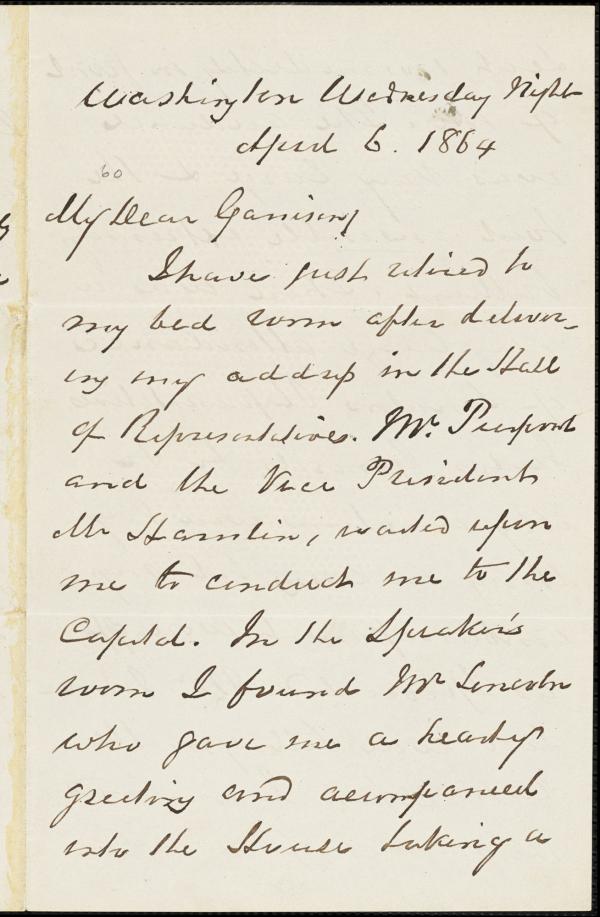 Washington Wednesday Night
April 6. 1864
60
My Dear Garrison,
I have just retired to
my bed room after deliver-
ing my address in the Hall
of Representatives. Mr. Pierpont
and the Vice President
Mr Hamlin, waited upon
me to conduct me to the
Capitol. In the Speaker's
room I found Mr Lincoln
who gave me a hearty
greeting and acompanied
into the House taking a